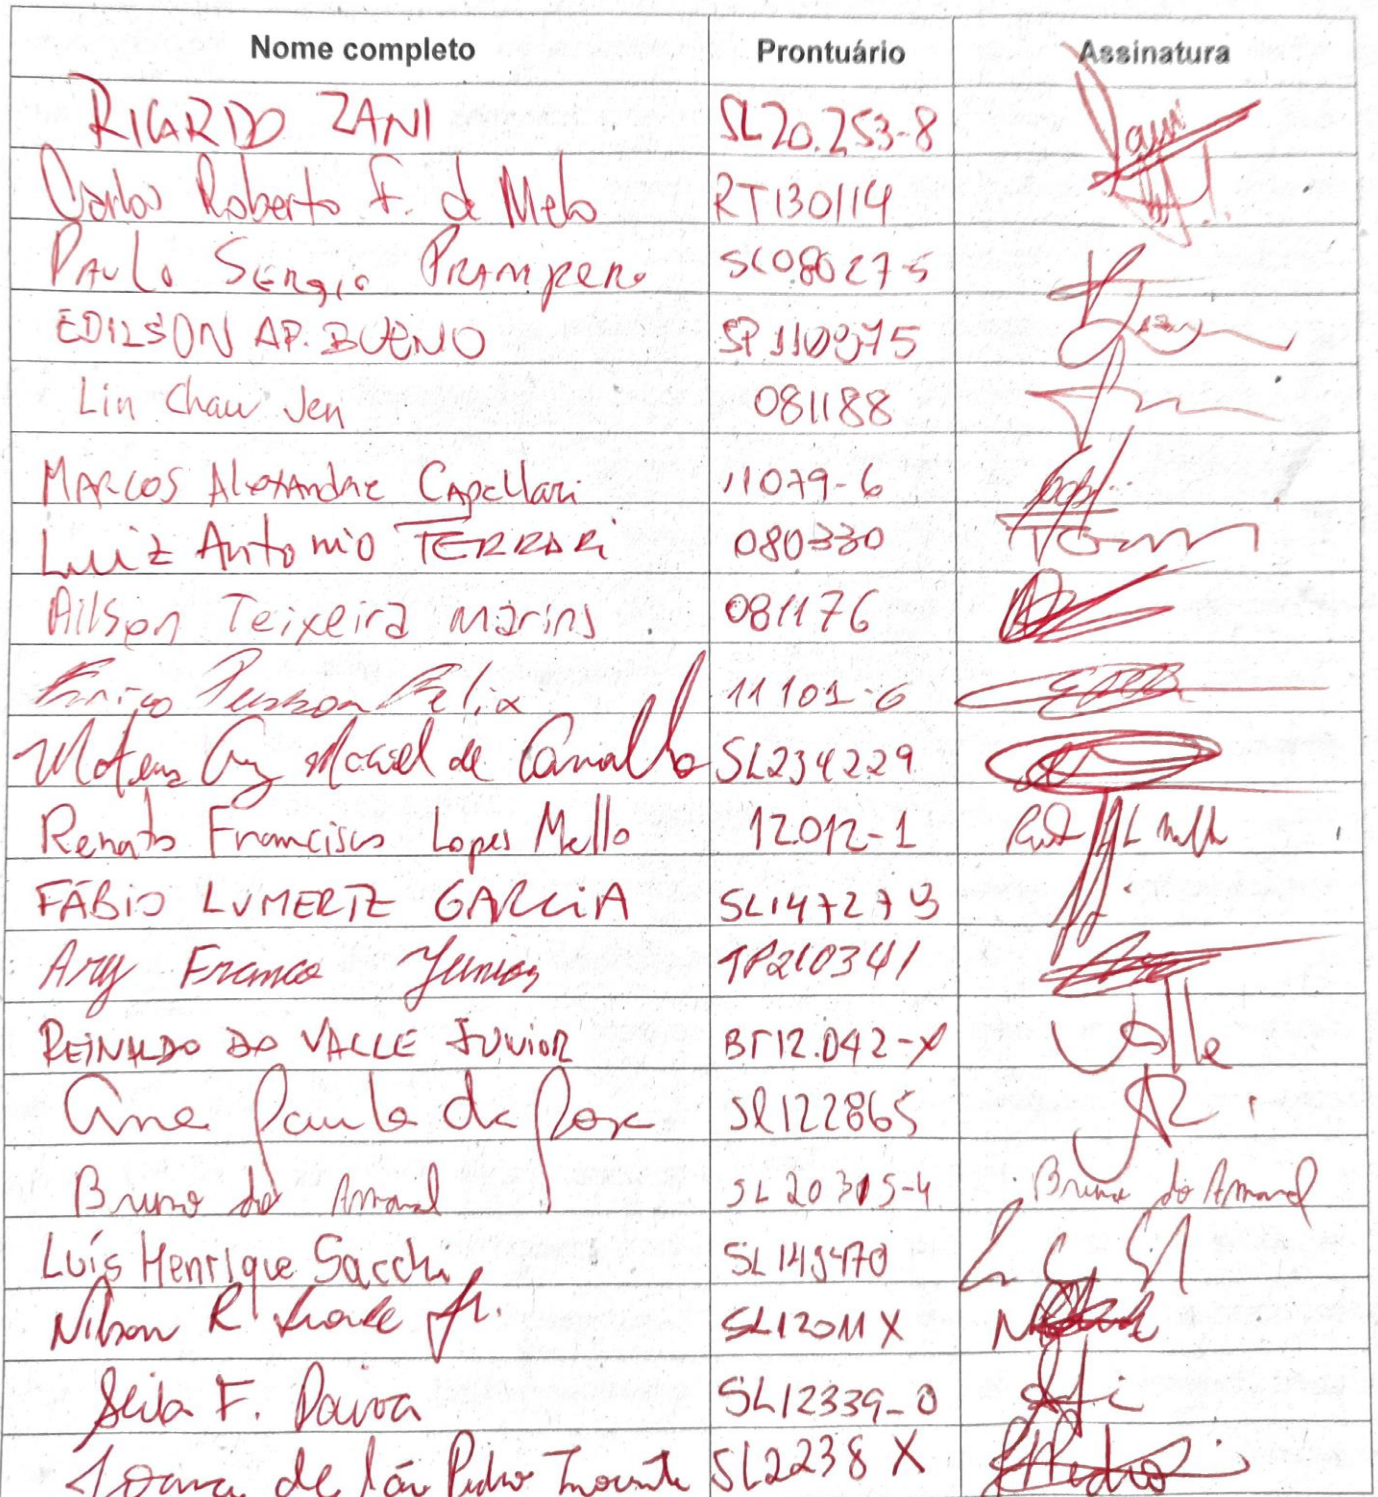 Nome completo Prontuário Assinatura
RICARDO ZANI SL20.253-8
Carlos Roberto F. de Melo RT130114
PAULO SERGIO PRAMPERO SL08027-5
EDILSON AP. BUENO SP110975
Lin Chau Jen 081188
MARCOS Alexandre Capellari 11079-6
Luiz Antonio TERRARI 080330
Ailson Teixeira marins 081176
Felix 11101-6
Maciel de Carvalho SL234229
Renato Francisco Lopes Mello 12012-1
FÁBIO LUMERTZ GARCIA
Ary Franco Junior 210341
REINALDO DO VALLE JUNIOR BT12.042-X Valle
Ana Paula da Rosa SL122865
Bruno do Amaral SL20315-4 Bruno do Amaral
Luís Henrique Sacchi
Nilson R Jr. SL12011X
Seila F. Paiva SL12339-0
de São Pedro SL2238X